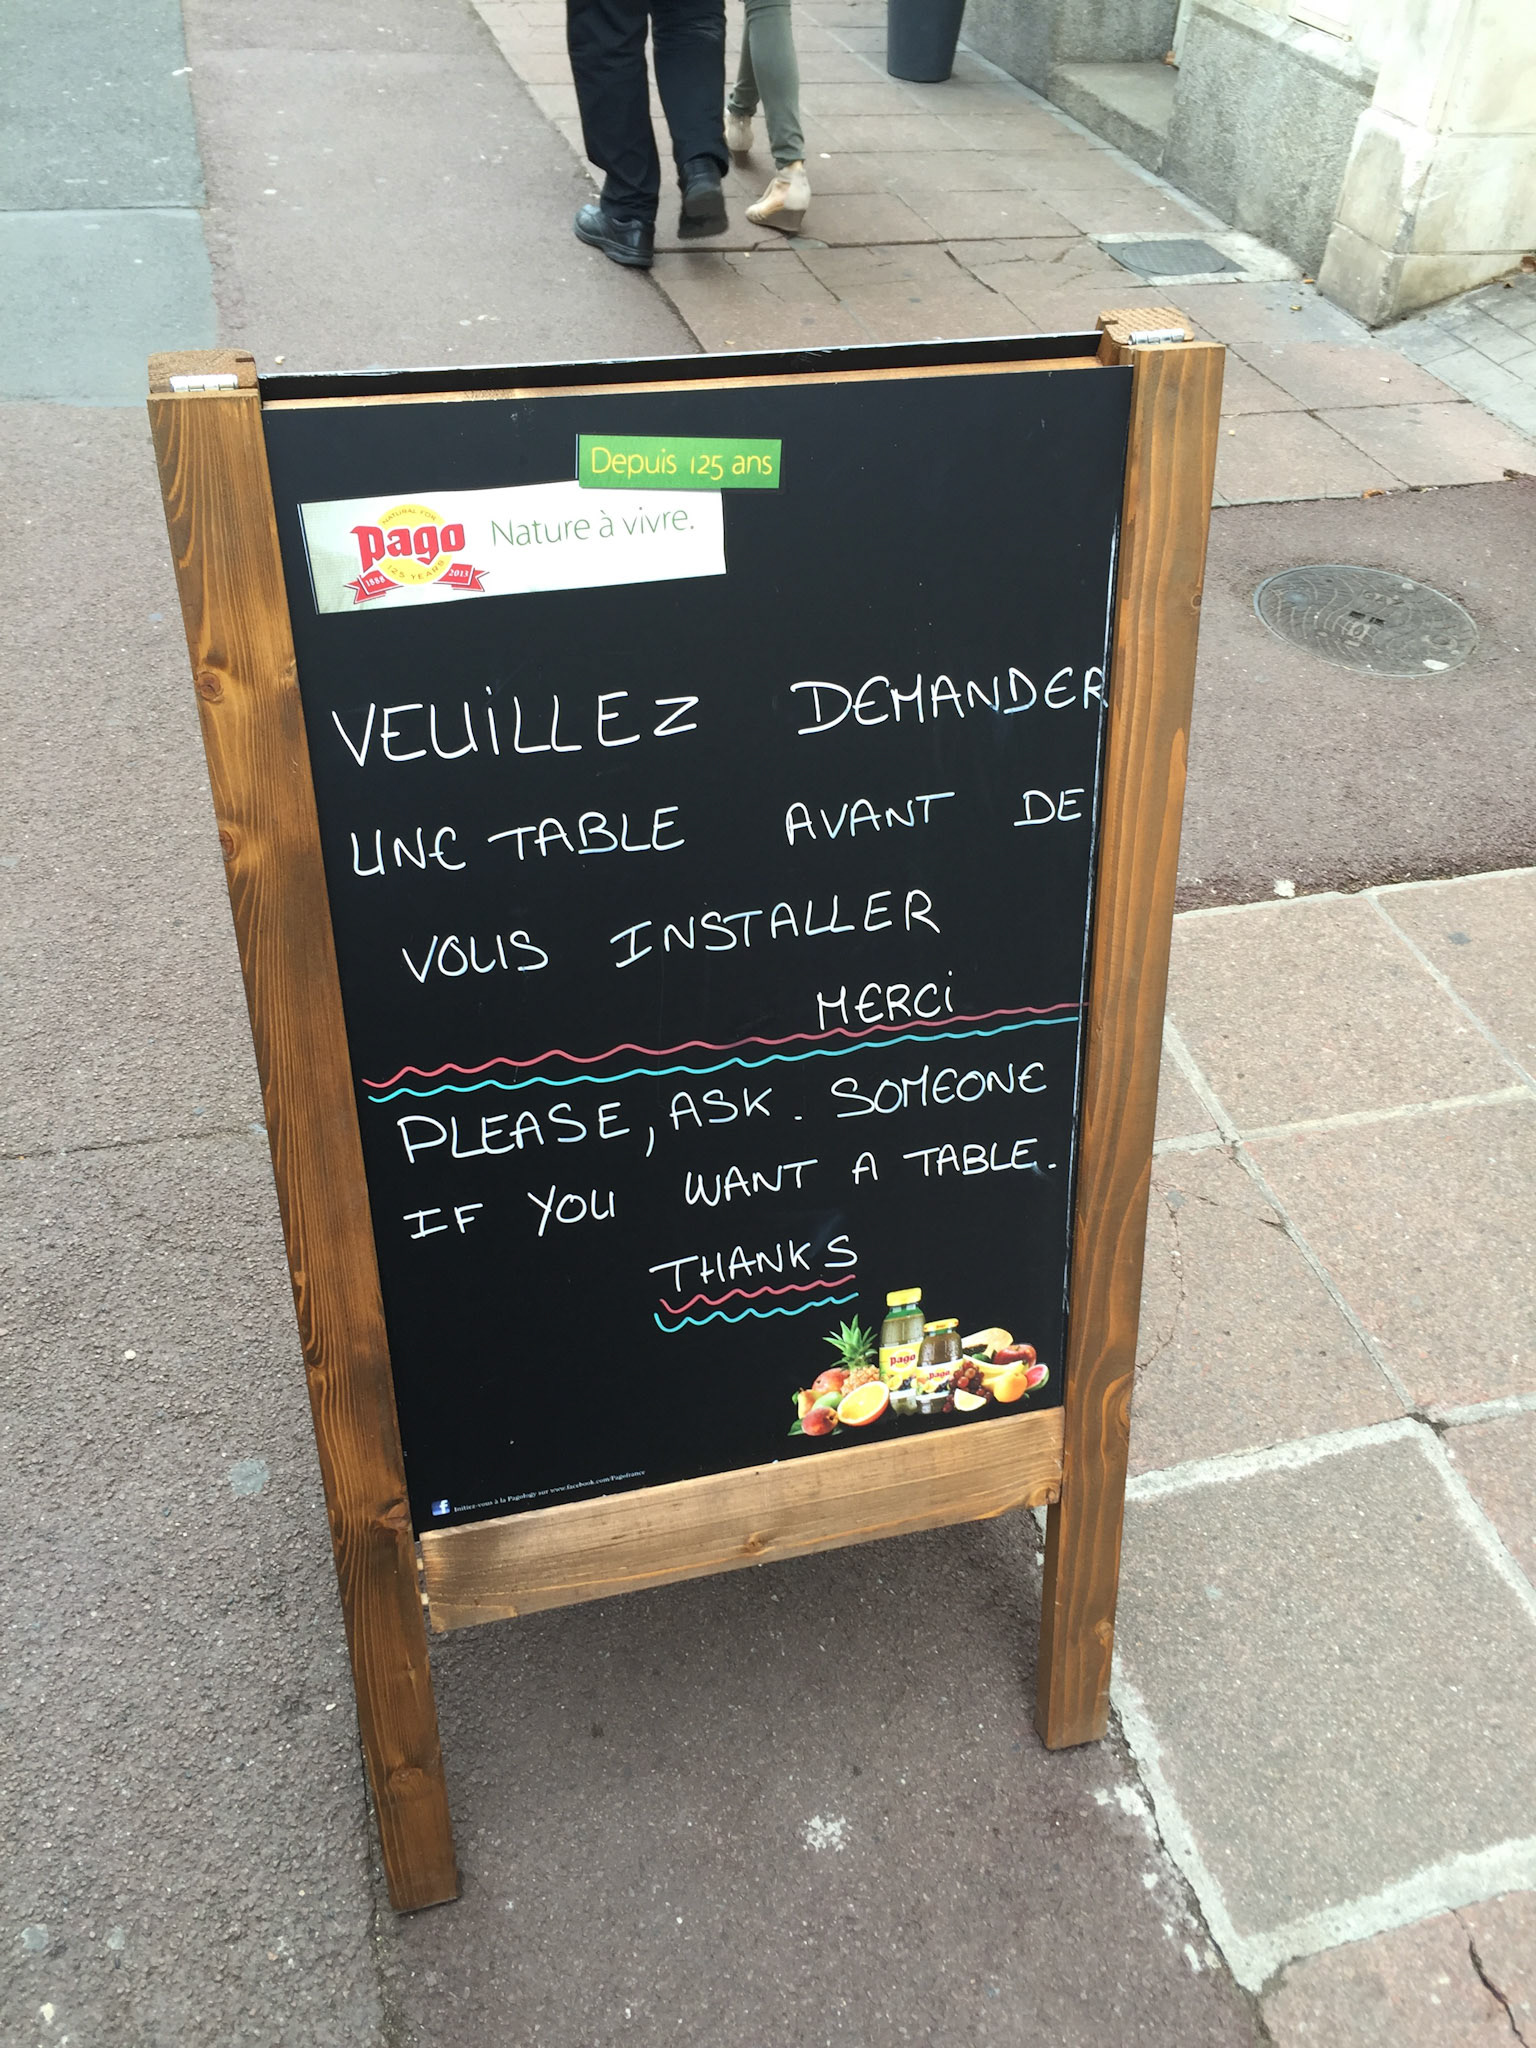 Depuis 125 ans
NATURAL FOR
Pago Nature à vivre.
125 YEARS
1888 2013
VEUiLLEZ DEMANDER
UNE TABLE AVANT DE
VOUS INSTALLER
MERCi
PLEASE, ASK. SOMEONE
IF YOU WANT A TABLE.
THANKS
Pago
Pago
f Initiez-vous à la Pagology sur www.facebook.com/Pagofrance